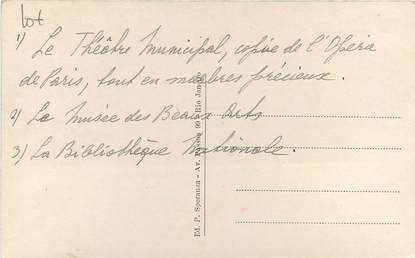 lot
1) Le Théâtre Municipal, copie de l'Opéra
de Paris, tout en marbres précieux.
2) Le Musée des Beaux Arts
3) La Bibliothèque Nationale.
Ed. P. Speranza - Av. 99 - Rio Janeiro